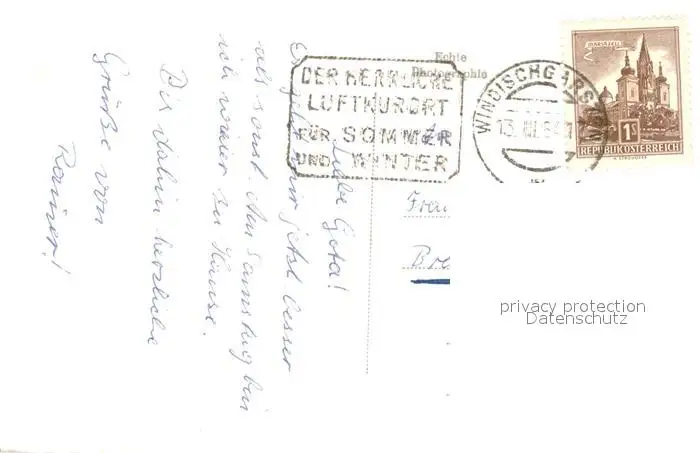 Liebe Gota!
Es geht mir jetzt besser
als sonst. Am Samstag bin
ich wieder zu Hause.
Bis dahin herzliche
Grüße von
Rainer!
Echte
Photographie
DER HERRLICHE
LUFTKURORT
FÜR SOMMER
UND WINTER
WINDISCHGARSTEN
13. III. 64
MARIAZELL
1S
REPUBLIK ÖSTERREICH
Frau
privacy protection
Datenschutz